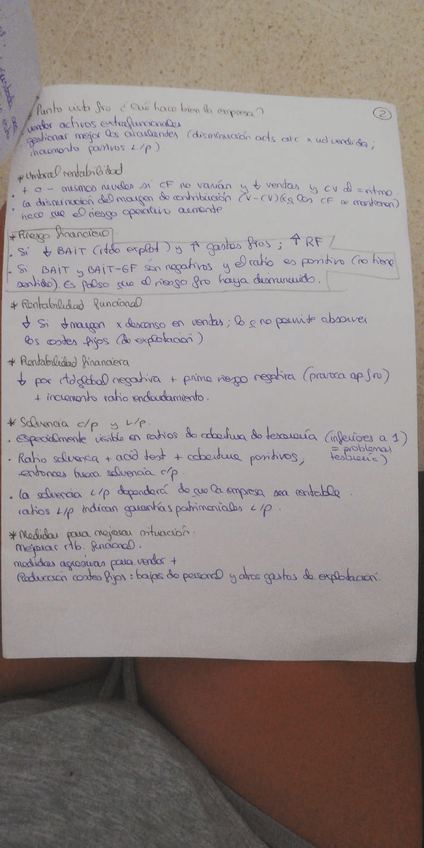 ②
* Punto vista fro ¿Qué hace bien la empresa?
vender activos extrafuncionales
gestionar mejor los circulantes (disminución acts circ x ud vendida;
incremento pasivos L/p)
* Umbral rentabilidad
+ o - mismos niveles si CF no varían y ↓ ventas y CV al = ritmo
· La disminución del margen de contribución (V-CV) (si los CF se mantienen)
hace que el riesgo operativo aumente
* Riesgo financiero
· Si ↓ BAIT (rtdo explot) y ↑ gastos fros; ↑ RF
· Si BAIT y BAIT-GF son negativos y el ratio es positivo (no tiene
sentido) Es falso que el riesgo fro haya disminuido.
* Rentabilidad funcional
↓ Si ↓ margen x descenso en ventas; lo q no permite absorver
los costes fijos (de explotación)
* Rentabilidad financiera
↓ por rtb global negativa + prima riesgo negativa (provoca ap fro)
+ incremento ratio endeudamiento.
* Solvencia c/p y L/p.
· especialmente visible en ratios de cobertura de tesorería (inferiores a 1)
= problemas
tesorería)
· Ratio solvencia + acid test + cobertura positivos,
entonces buena solvencia c/p.
· La solvencia L/p dependerá de que la empresa sea rentable.
ratios L/p indican garantías patrimoniales L/p.
* Medidas para mejorar situación.
Mejorar rtb. funcional.
medidas agresivas para vender +
Reducción costes fijos: bajas de personal y otros gastos de explotación.